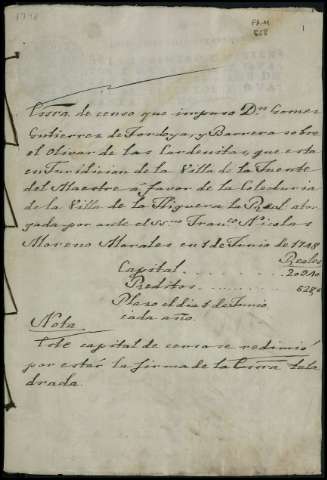 1748
FA.M
858
1
Essra. de censo que impuso Dn. Gomez
Gutierrez de Tordoya, y Barrera sobre
el Olivar de las Cardenitas, que esta
en Juridicion de la Villa de la Fuente
del Maestre à favor de la Colecturia
de la Villa de la Higuera la Real otor
gada por ante el Ssno. Franco. Nicolas
Moreno Morales en 1 de Junio de 1748
Reales
Capital . . . . . .
Reditos . . . . . .
Plazo el dia 1 de Junio
cada año.
Nota.
Este capital de censo se redimió
por estár la firma de la Essra. tala
drada.